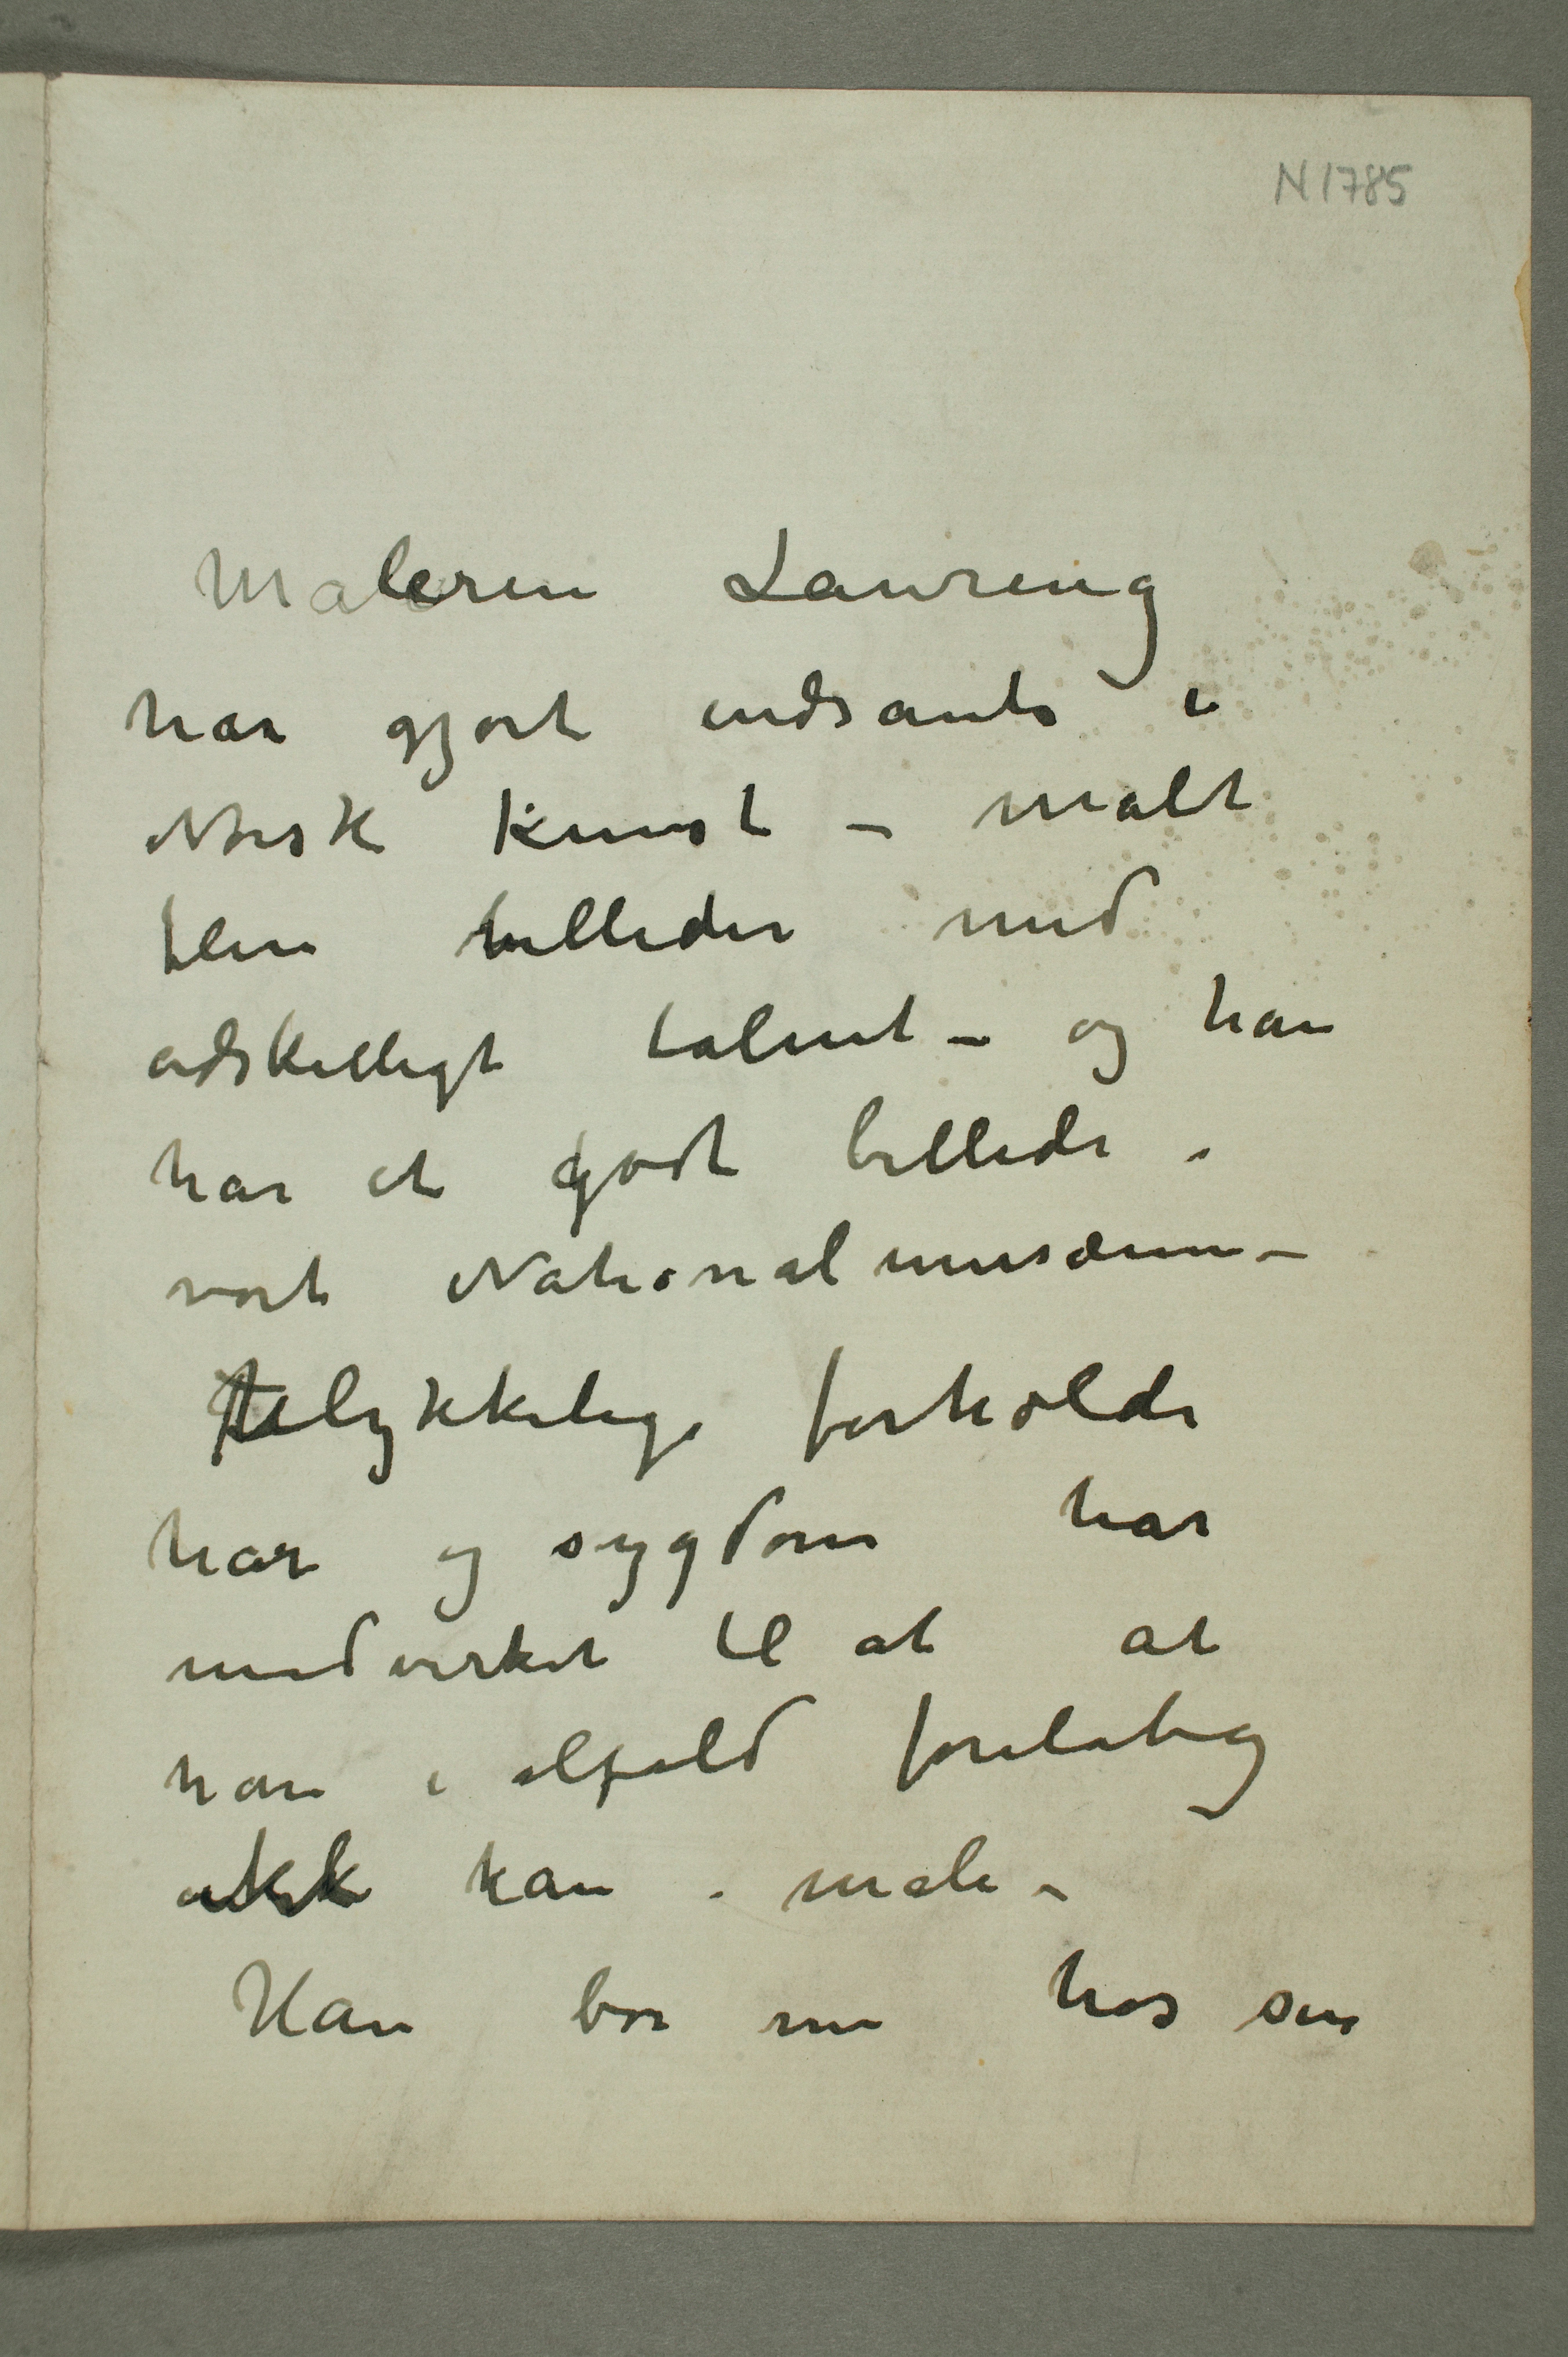 N 1785
Maleren Lavreng
har gjort indsants i
Norsk Kunst – malt
flere billeder med
adskilligt talent – og han
har et godt billede i
vort Nationalmusæum –
Ulykkelige forholde
har og sygdom har
medvirket til at at
han i alfald foreløbig
ikke kan male –
Han bor nu hos sin